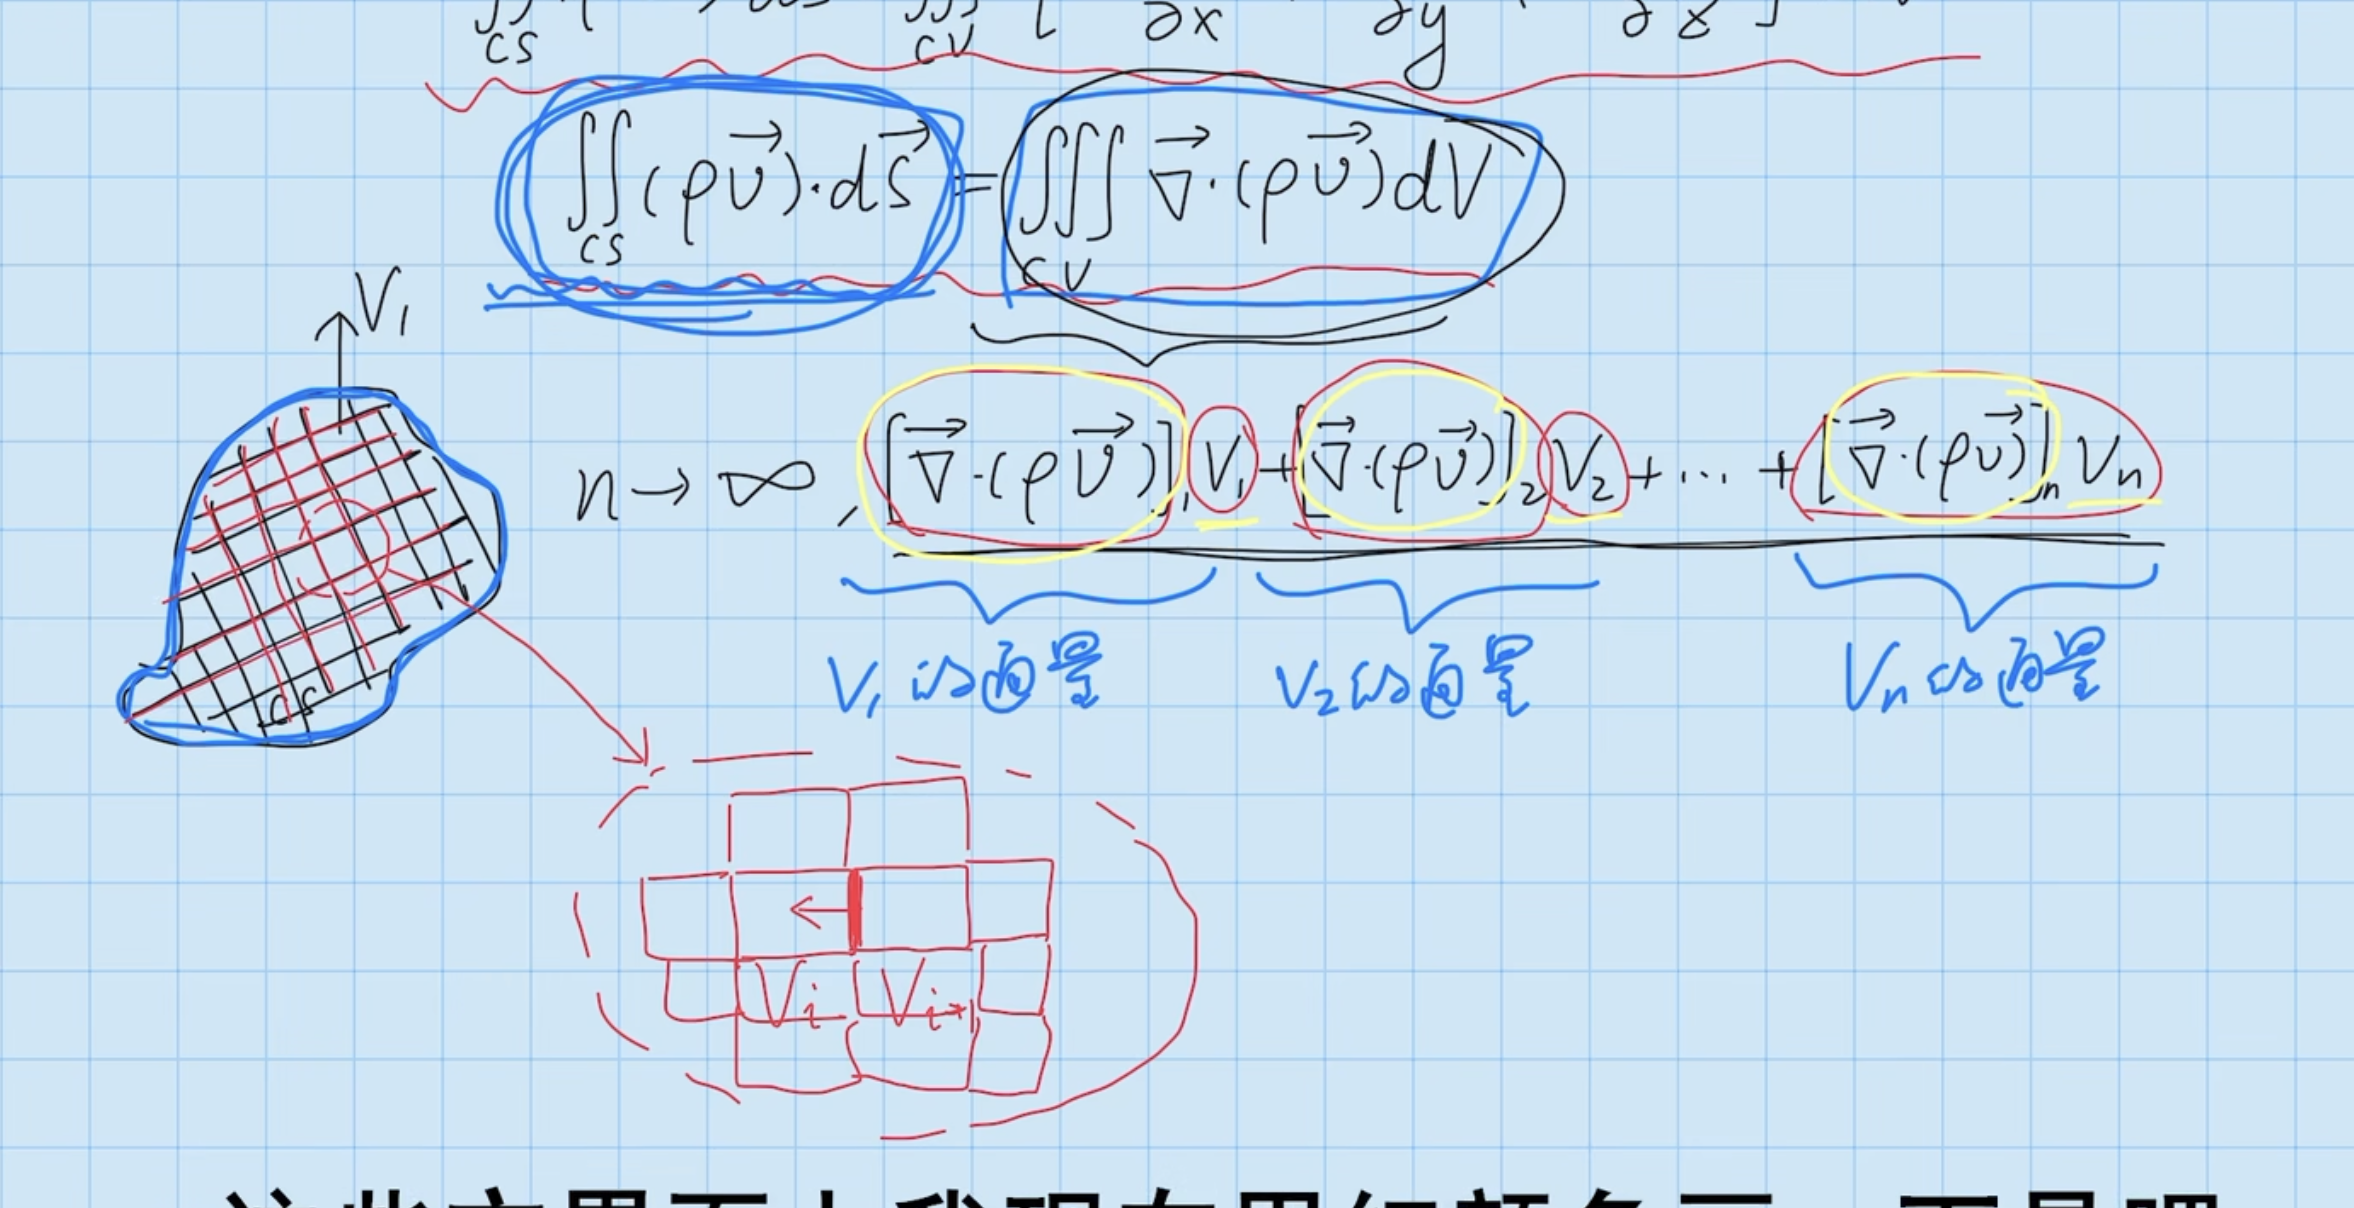 CS CV [ ∂x ∂y ∂z ]
∬CS (ρv⃗)·ds⃗ = ∭CV ∇⃗·(ρv⃗)dV
V₁
n→∞, [∇⃗·(ρv⃗)]₁V₁+[∇⃗·(ρv⃗)]₂V₂+...+[∇⃗·(ρv⃗)]ₙVₙ
V₁的通量 V₂的通量 Vₙ的通量
CS
Vi Vi+1